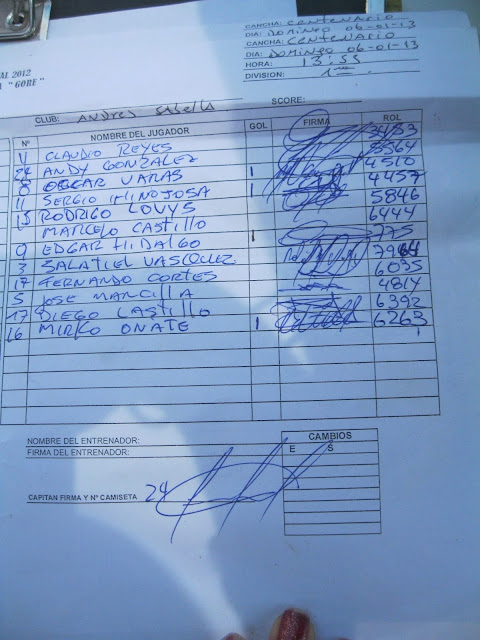 CANCHA: CENTENARIO
DIA: DOMINGO 06-01-13
CANCHA: CENTENARIO
DIA: DOMINGO 06-01-13
HORA: 13:55
DIVISION: 1
AL 2012
"GORE"
CLUB: ANDRES SABELLA SCORE:
Nº NOMBRE DEL JUGADOR GOL FIRMA ROL
11 CLAUDIO REYES
24 ANDY GONZALEZ 8564
8 OSCAR VARAS 4510
11 SERGIO HINOJOSA 1 4457
15 RODRIGO LOVYS 1 5846
MARCELO CASTILLO 6444
9 EDGAR HIDALGO 1 775
3 SALATIEL VASQUEZ 7964
17 FERNANDO CORTES 6035
5 JOSE MANCILLA 4814
17 DIEGO CASTILLO 6392
16 MIRKO OÑATE 1 6263
NOMBRE DEL ENTRENADOR:
FIRMA DEL ENTRENADOR:
CAMBIOS
E S
CAPITAN FIRMA Y Nº CAMISETA 24